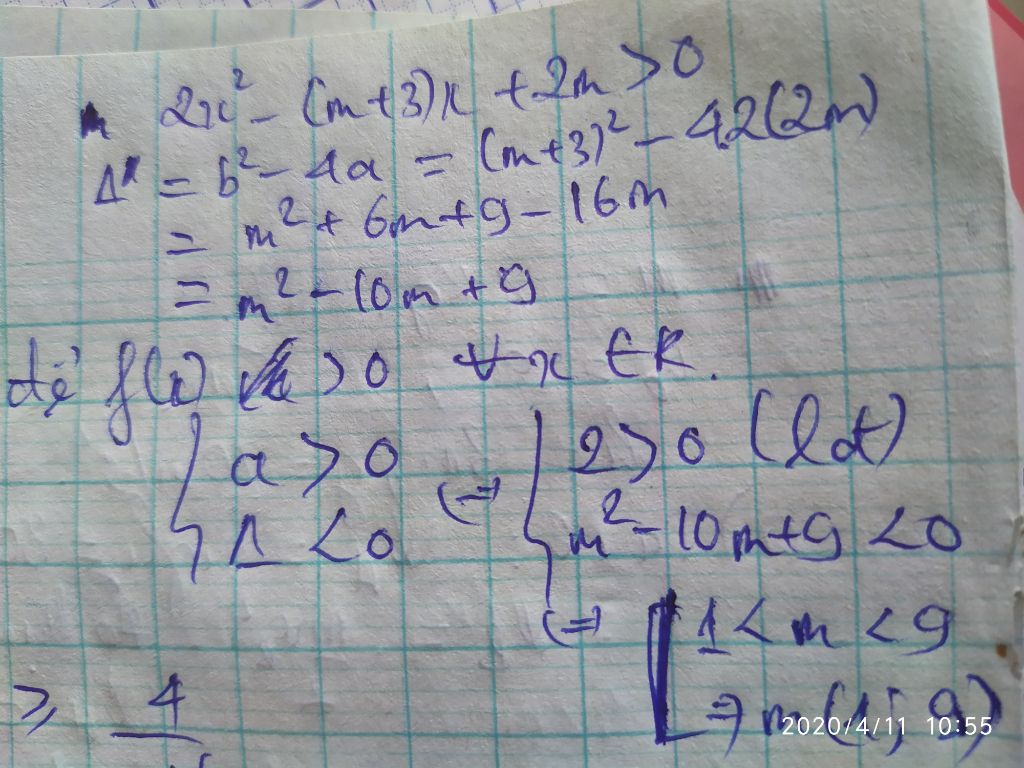 2x² - (m+3)x + 2m > 0
Δ = b² - 4a = (m+3)² - 4.2(2m)
= m² + 6m + 9 - 16m
= m² - 10m + 9
để f(x) > 0 ∀x ∈ R.
{ a > 0 (=) { 2 > 0 (lđ)
Δ < 0 m² - 10m + 9 < 0
(=) [ 1 < m < 9
≥ 4 => m (1; 9)
2020/4/11 10:55